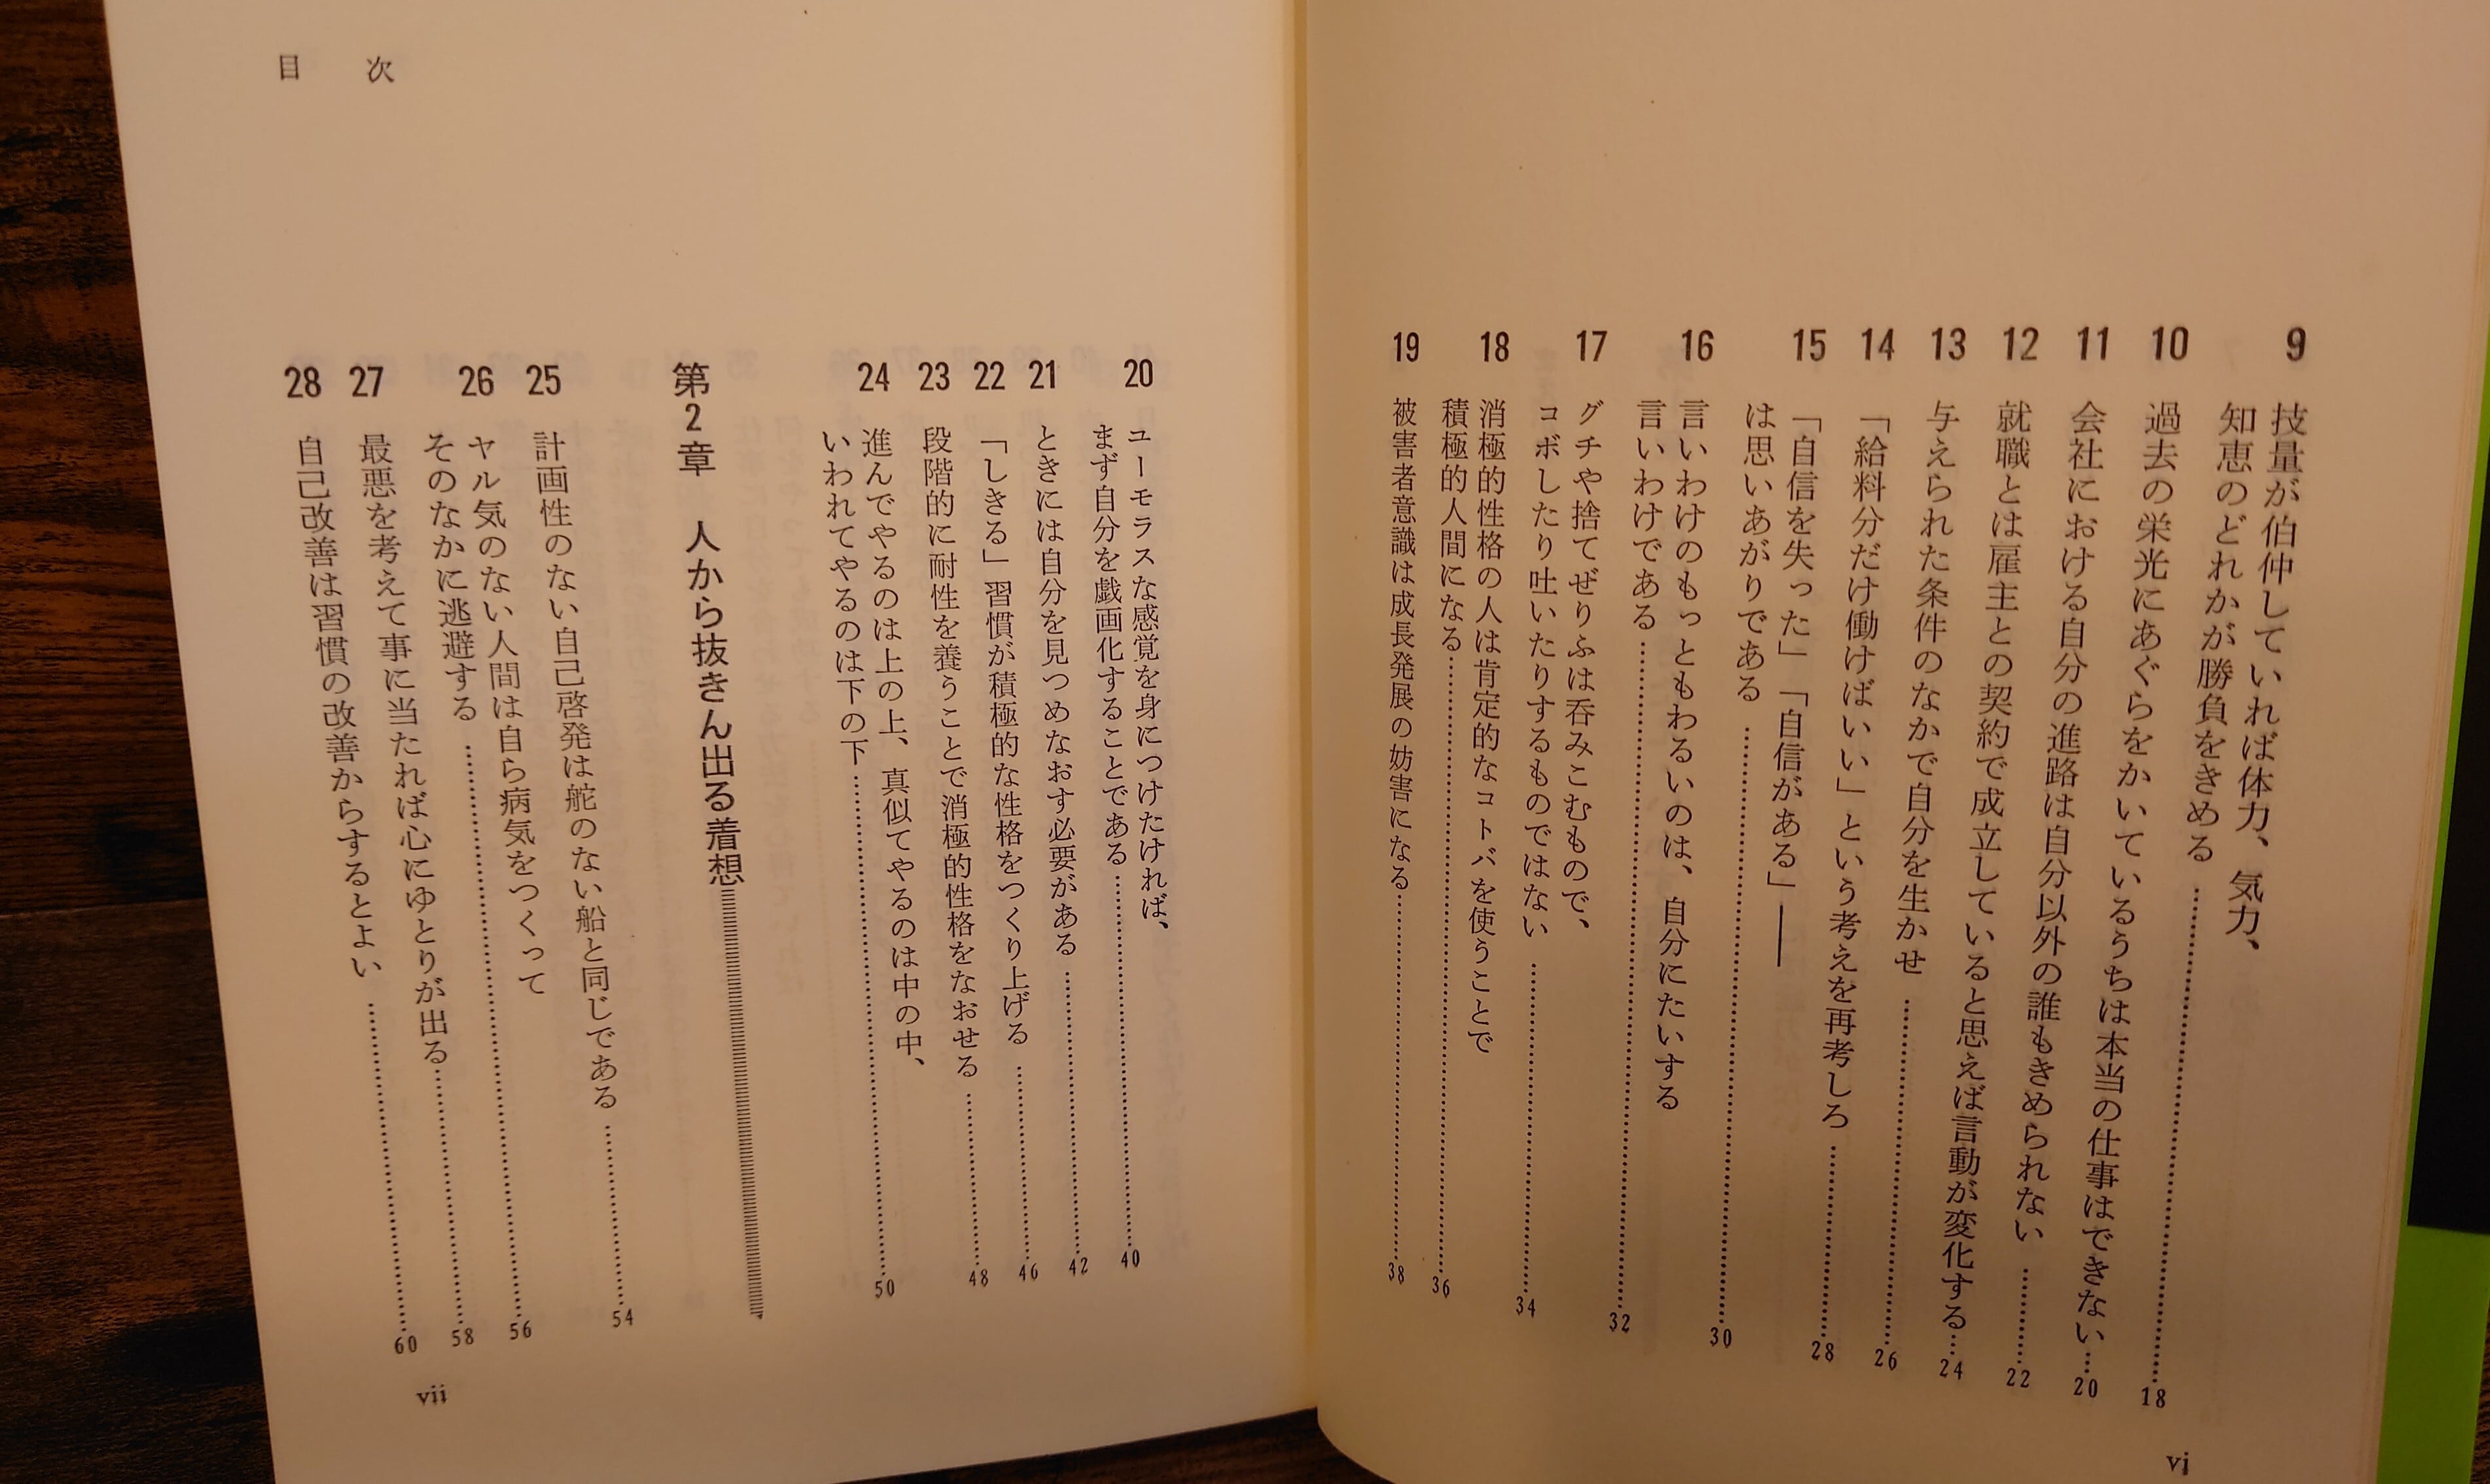 9 技量が伯仲していれば体力、気力、
知恵のどれかが勝負をきめる……18
10 過去の栄光にあぐらをかいているうちは本当の仕事はできない……20
11 会社における自分の進路は自分以外の誰もきめられない……22
12 就職とは雇主との契約で成立していると思えば言動が変化する……24
13 与えられた条件のなかで自分を生かせ……26
14 「給料分だけ働けばいい」という考えを再考しろ……28
15 「自信を失った」「自信がある」——
は思いあがりである……30
16 言いわけのもっともわるいのは、自分にたいする
言いわけである……32
17 グチや捨てぜりふは呑みこむもので、
コボしたり吐いたりするものではない……34
18 消極的性格の人は肯定的なコトバを使うことで
積極的人間になる……36
19 被害者意識は成長発展の妨害になる……38
vi
目次
20 ユーモラスな感覚を身につけたければ、
まず自分を戯画化することである……40
21 ときには自分を見つめなおす必要がある……42
22 「しきる」習慣が積極的な性格をつくり上げる……46
23 段階的に耐性を養うことで消極的性格をなおせる……48
24 進んでやるのは上の上、真似てやるのは中の中、
いわれてやるのは下の下……50
第2章 人から抜きん出る着想
25 計画性のない自己啓発は舵のない船と同じである……54
26 ヤル気のない人間は自ら病気をつくって
そのなかに逃避する……56
27 最悪を考えて事に当たれば心にゆとりが出る……58
28 自己改善は習慣の改善からするとよい……60
vii